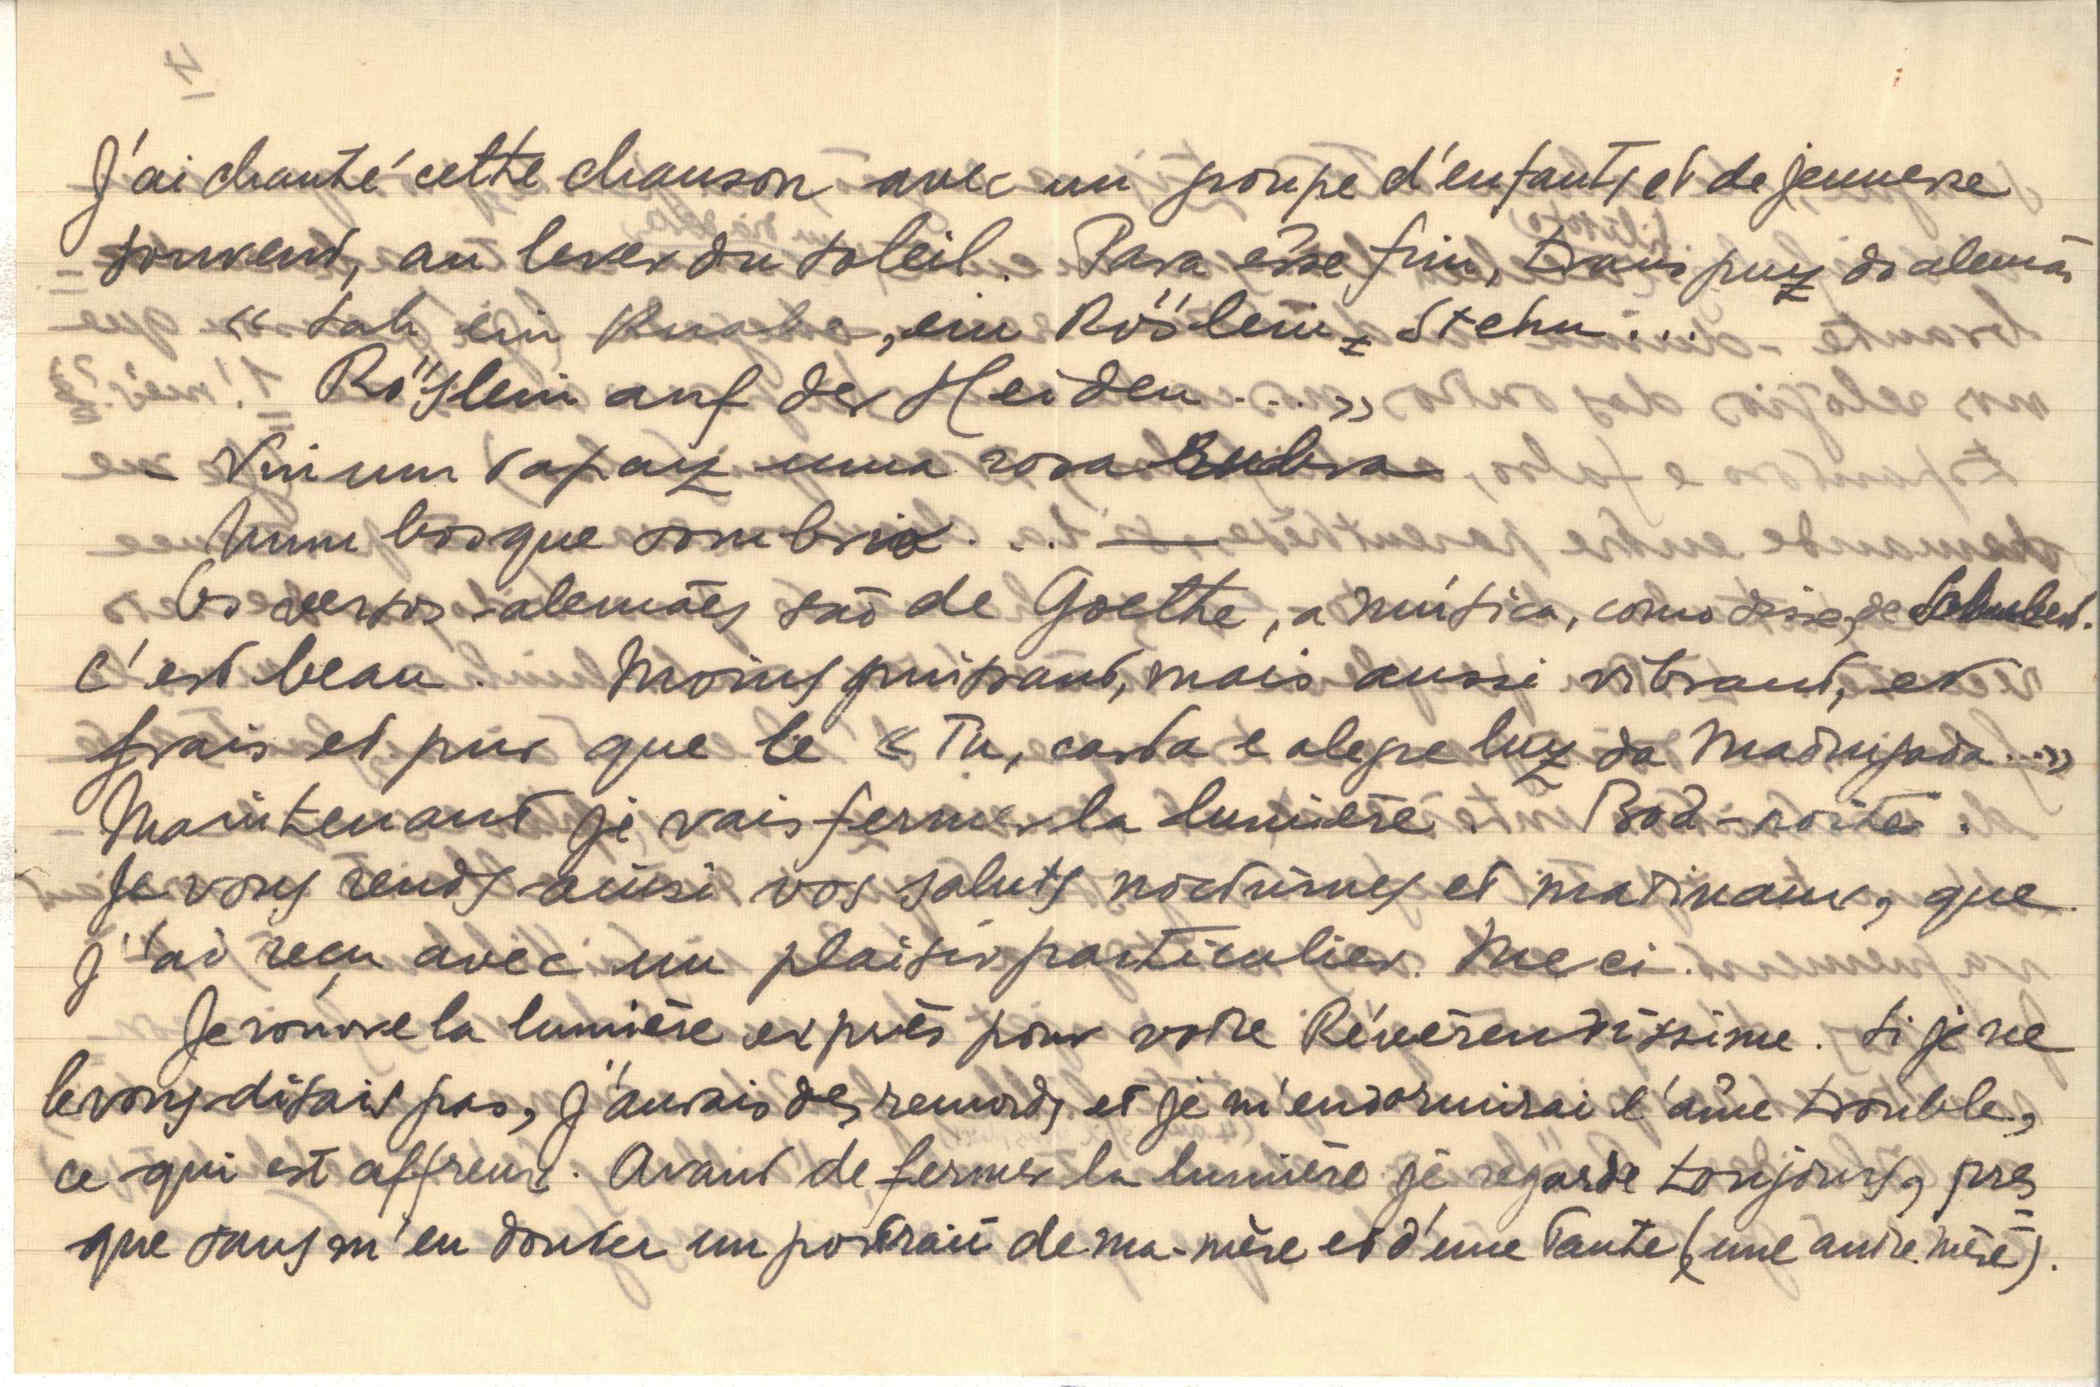 J'ai chanté cette chanson avec un groupe d'enfants et de jeunesse
souvent, au lever du soleil. Para êsse fim, transpuz do alemão
« Sah ein Knabe, ein Röslein stehn...
Röslein auf der Heiden.... »
- Viu um rapaz uma rosa rubra
Num bosque sombrio... —
Os versos alemães são de Goethe, a música, como disse, de Schubert.
C'est beau. Moins puissant, mais aussi vibrant, et
frais et pur que le « Tu, casta e alegre luz da madrugada...»
Maintenant je vais fermer la lumière. Boa-noite.
Je vous rends ainsi vos saluts nocturnes et matinaux, que
j'ai reçu avec un plaisir particulier. Meci.
Je rouvre la lumière exprès pour votre Révérendissime. Si je ne
le vous disais pas, j'aurais des remords et je m'endormirai l'âme trouble,
ce qui est affreux. Avant de fermer la lumière je regarde toujours, pres=
que sans m'en douter un portrait de ma-mère et d'une Tante (une autre mère).